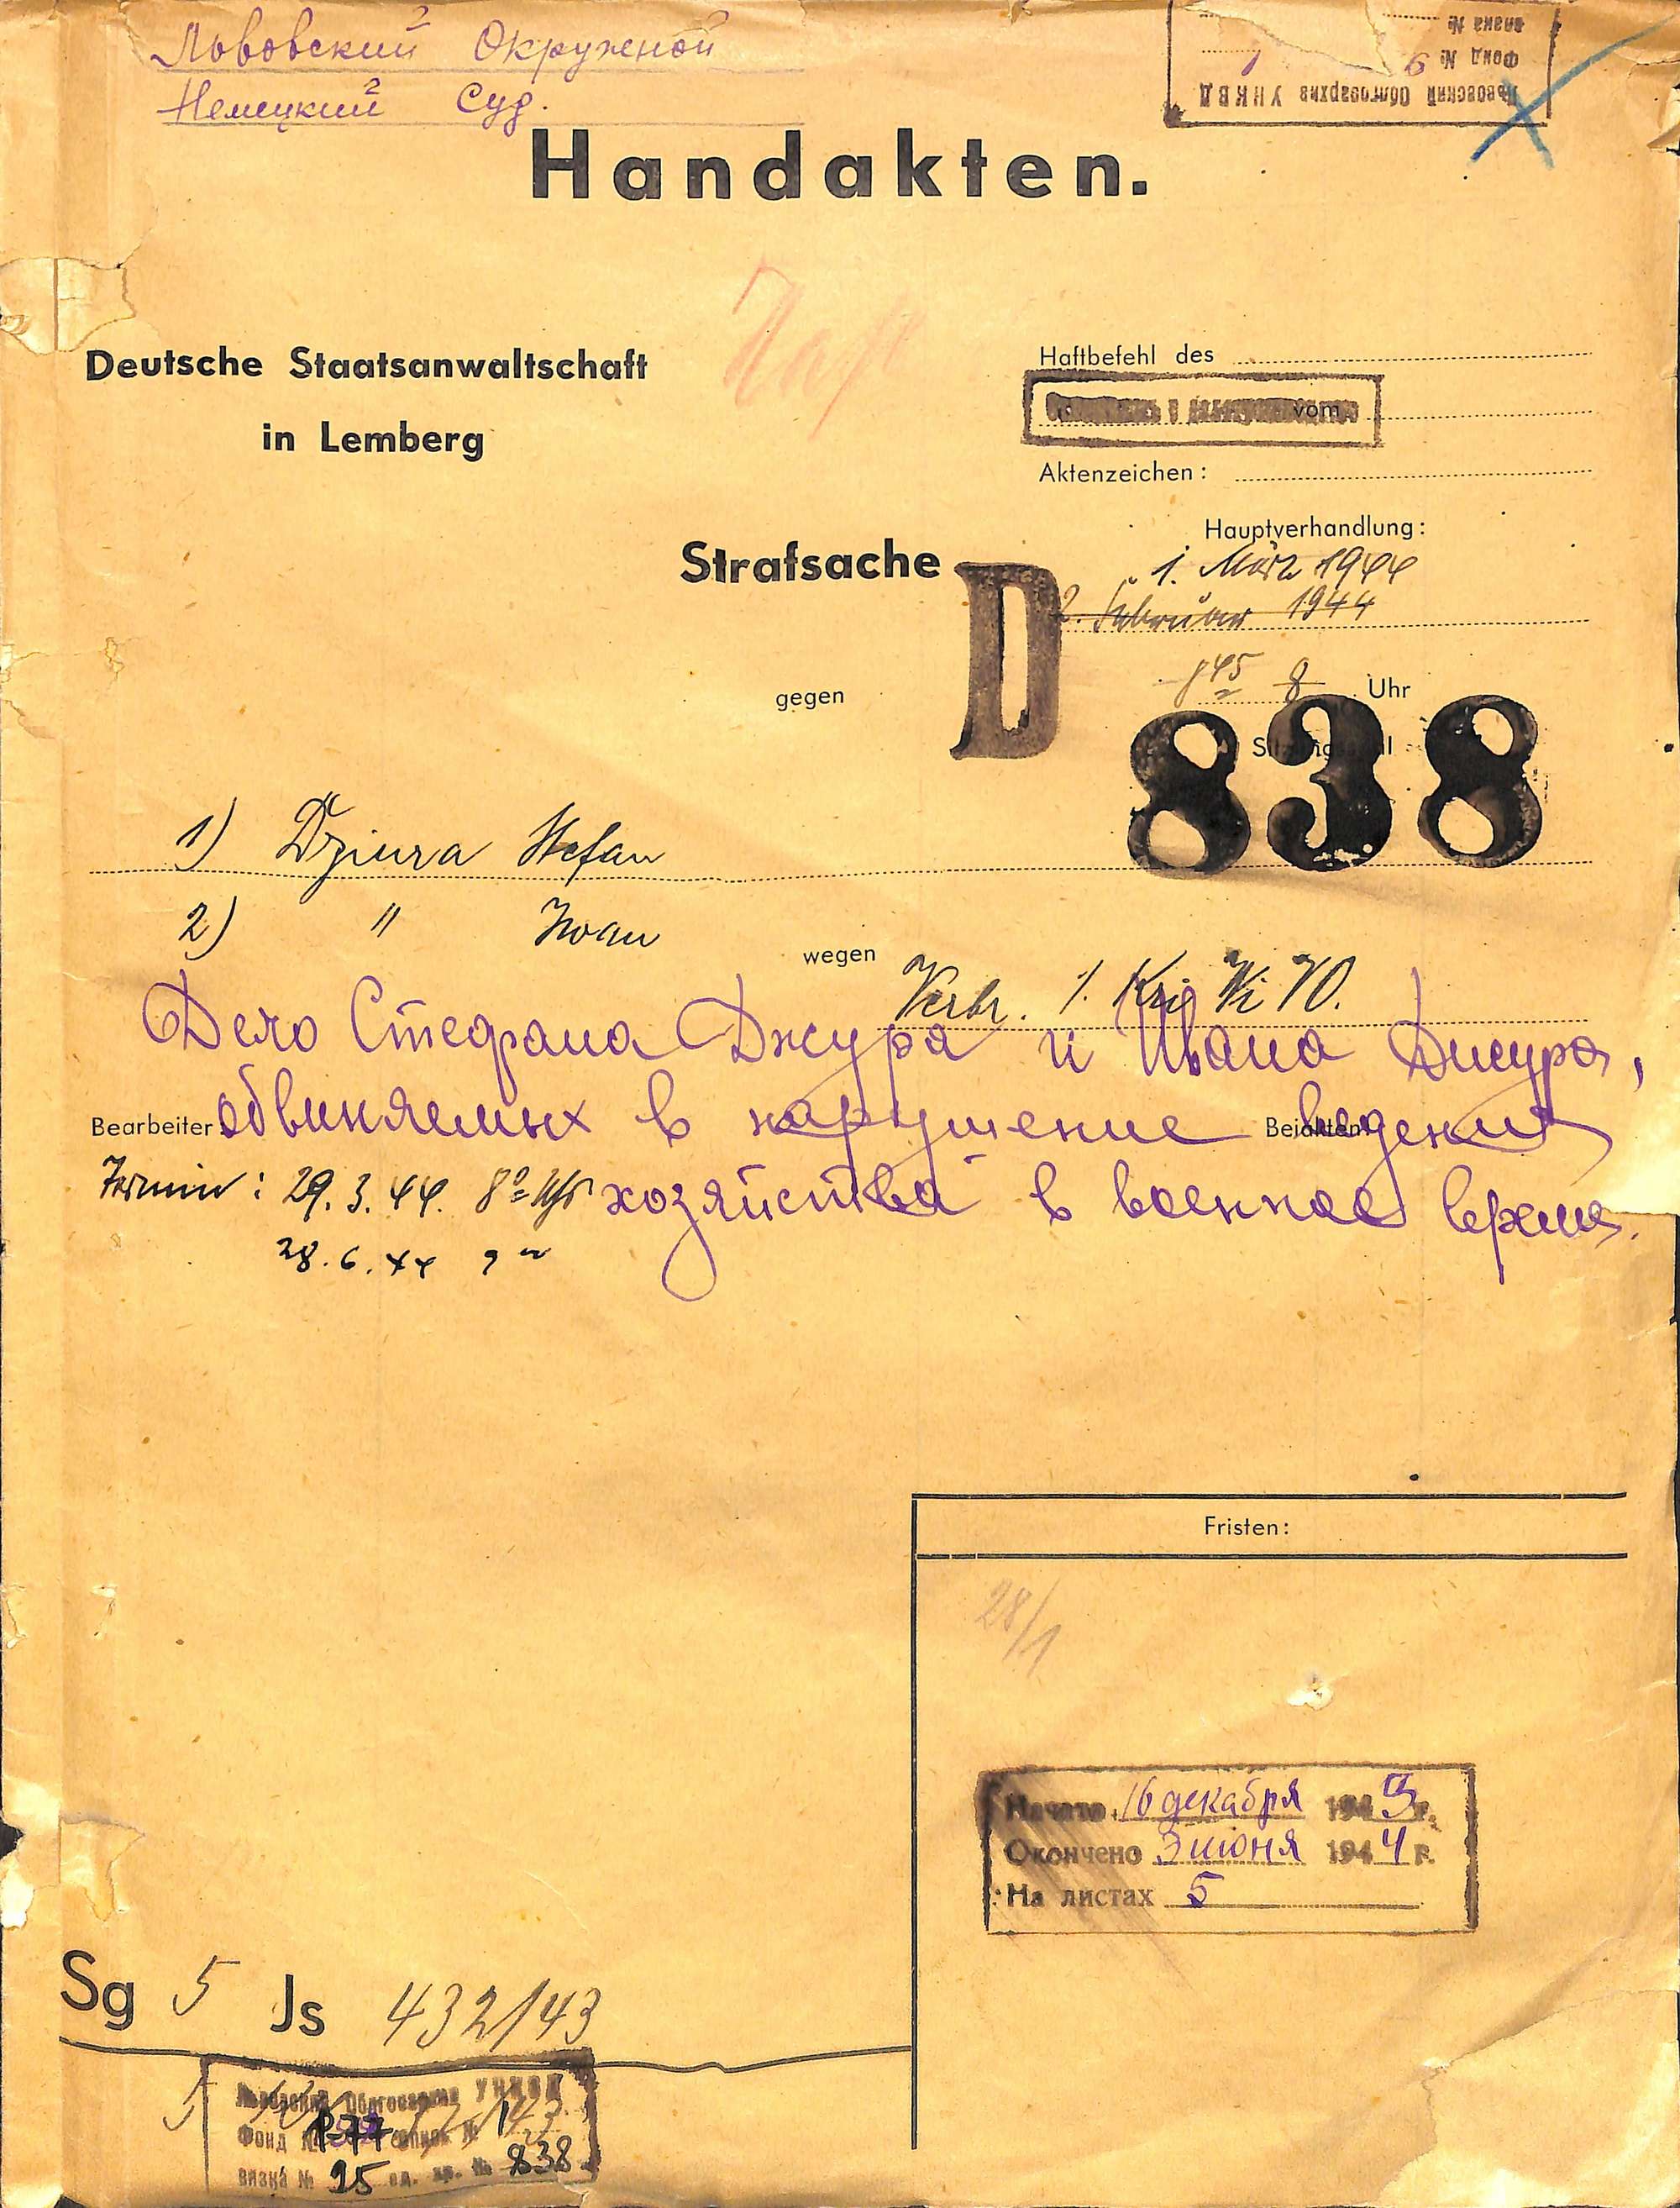 Львовский Окружной
Немецкий Суд.
Львовский Облгосархив УНКВД
Фонд № 6
вязка №
Handakten.
Haft
Deutsche Staatsanwaltschaft
in Lemberg
Haftbefehl des
vom
Aktenzeichen:
Strafsache
Hauptverhandlung:
1. März 1944
2. Februar 1944
D
gegen
8 45 8 Uhr
838
1) Dziura Stefan
2) " Iwan
wegen
Verbr. 1. Kri Wi VO.
Дело Стефана Джура и Ивана Джура,
обвиняемых в нарушение ведения
Bearbeiter:
Beiakten:
Termin: 29.3.44. 8º Uhr
хозяйства в военное время.
28.6.44 9
Fristen:
28/1
Начато 16 декабря 1943 г.
Окончено 3 июня 1944 г.
На листах 5
Sg 5 Js 432/43
5
Львовский Облгосархив УНКВД
Фонд № Р-77 опись № 1
вязка № 15 ед. хр. № 838